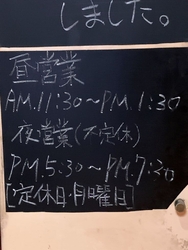 しました。
昼営業
A.M.11:30～P.M.1:30
夜営業(不定休)
P.M.5:30～P.M.7:30
[定休日・月曜日]